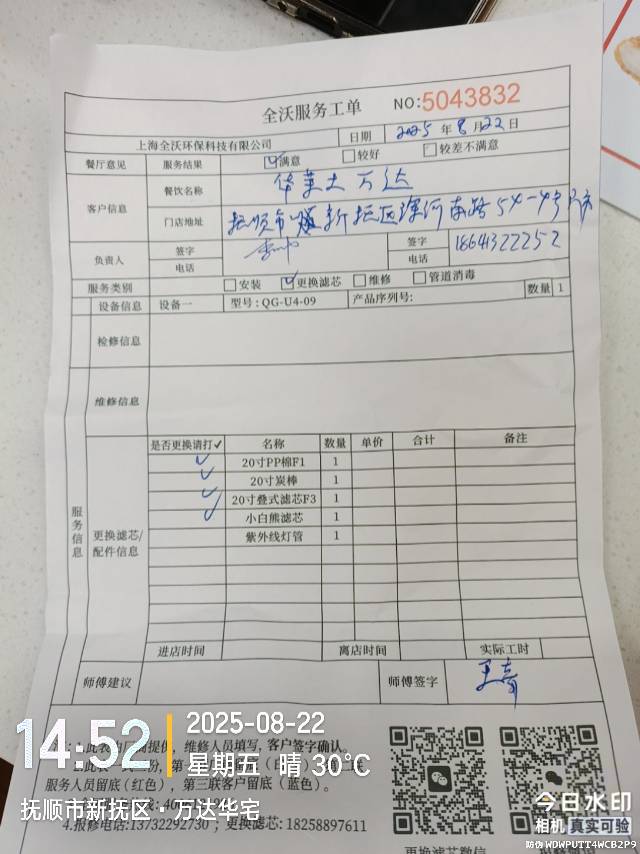 全沃服务工单 NO:5043832
上海全沃环保科技有限公司 日期 2025 年 8 月 22 日
餐厅意见 服务结果 ☑满意 □较好 □较差不满意
客户信息 餐饮名称 华莱士 万达
门店地址 抚顺市 新抚区浑河南路54-4号
负责人 签字 签字
电话 电话 18641322252
服务类别 □安装 ☑更换滤芯 □维修 □管道消毒
服务信息
设备信息 设备一 型号:QG-U4-09 产品序列号: 数量 1
检修信息
维修信息
更换滤芯/配件信息 是否更换请打✓ 名称 数量 单价 合计 备注
✓ 20寸PP棉F1 1
✓ 20寸炭棒 1
✓ 20寸叠式滤芯F3 1
✓ 小白熊滤芯 1
紫外线灯管 1
进店时间 离店时间 实际工时
师傅建议 师傅签字
1.此表由 提供，维修人员填写，客户签字确认。
服务人员留底(红色)，第三联客户留底（蓝色）。
4.报修电话:13732292730 ；更换滤芯: 18258897611
更换滤芯微信
14:52
2025-08-22
星期五·晴 30℃
抚顺市新抚区·万达华宅
今日水印
相机 真实可验
防伪 WDWPUTT4WCB2P9